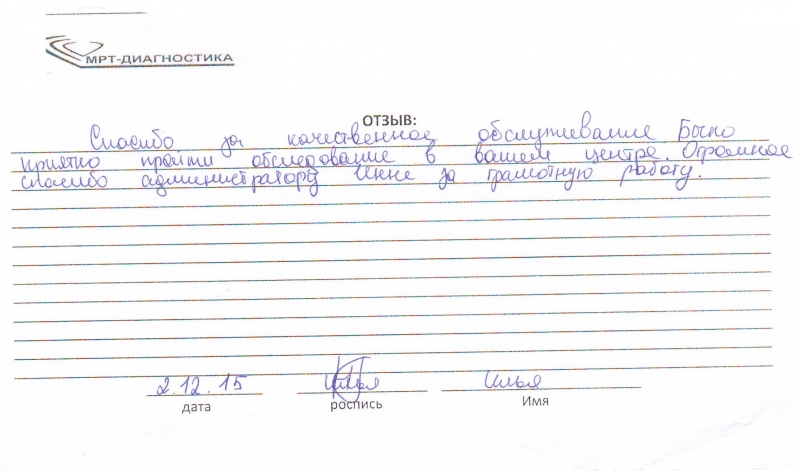 МРТ-ДИАГНОСТИКА
ОТЗЫВ:
Спасибо за качественное обслуживание Было
приятно пройти обследование в вашем центре. Огромное
спасибо администратору Инне за грамотную работу.
2.12.15 Илья Илья
дата роспись Имя